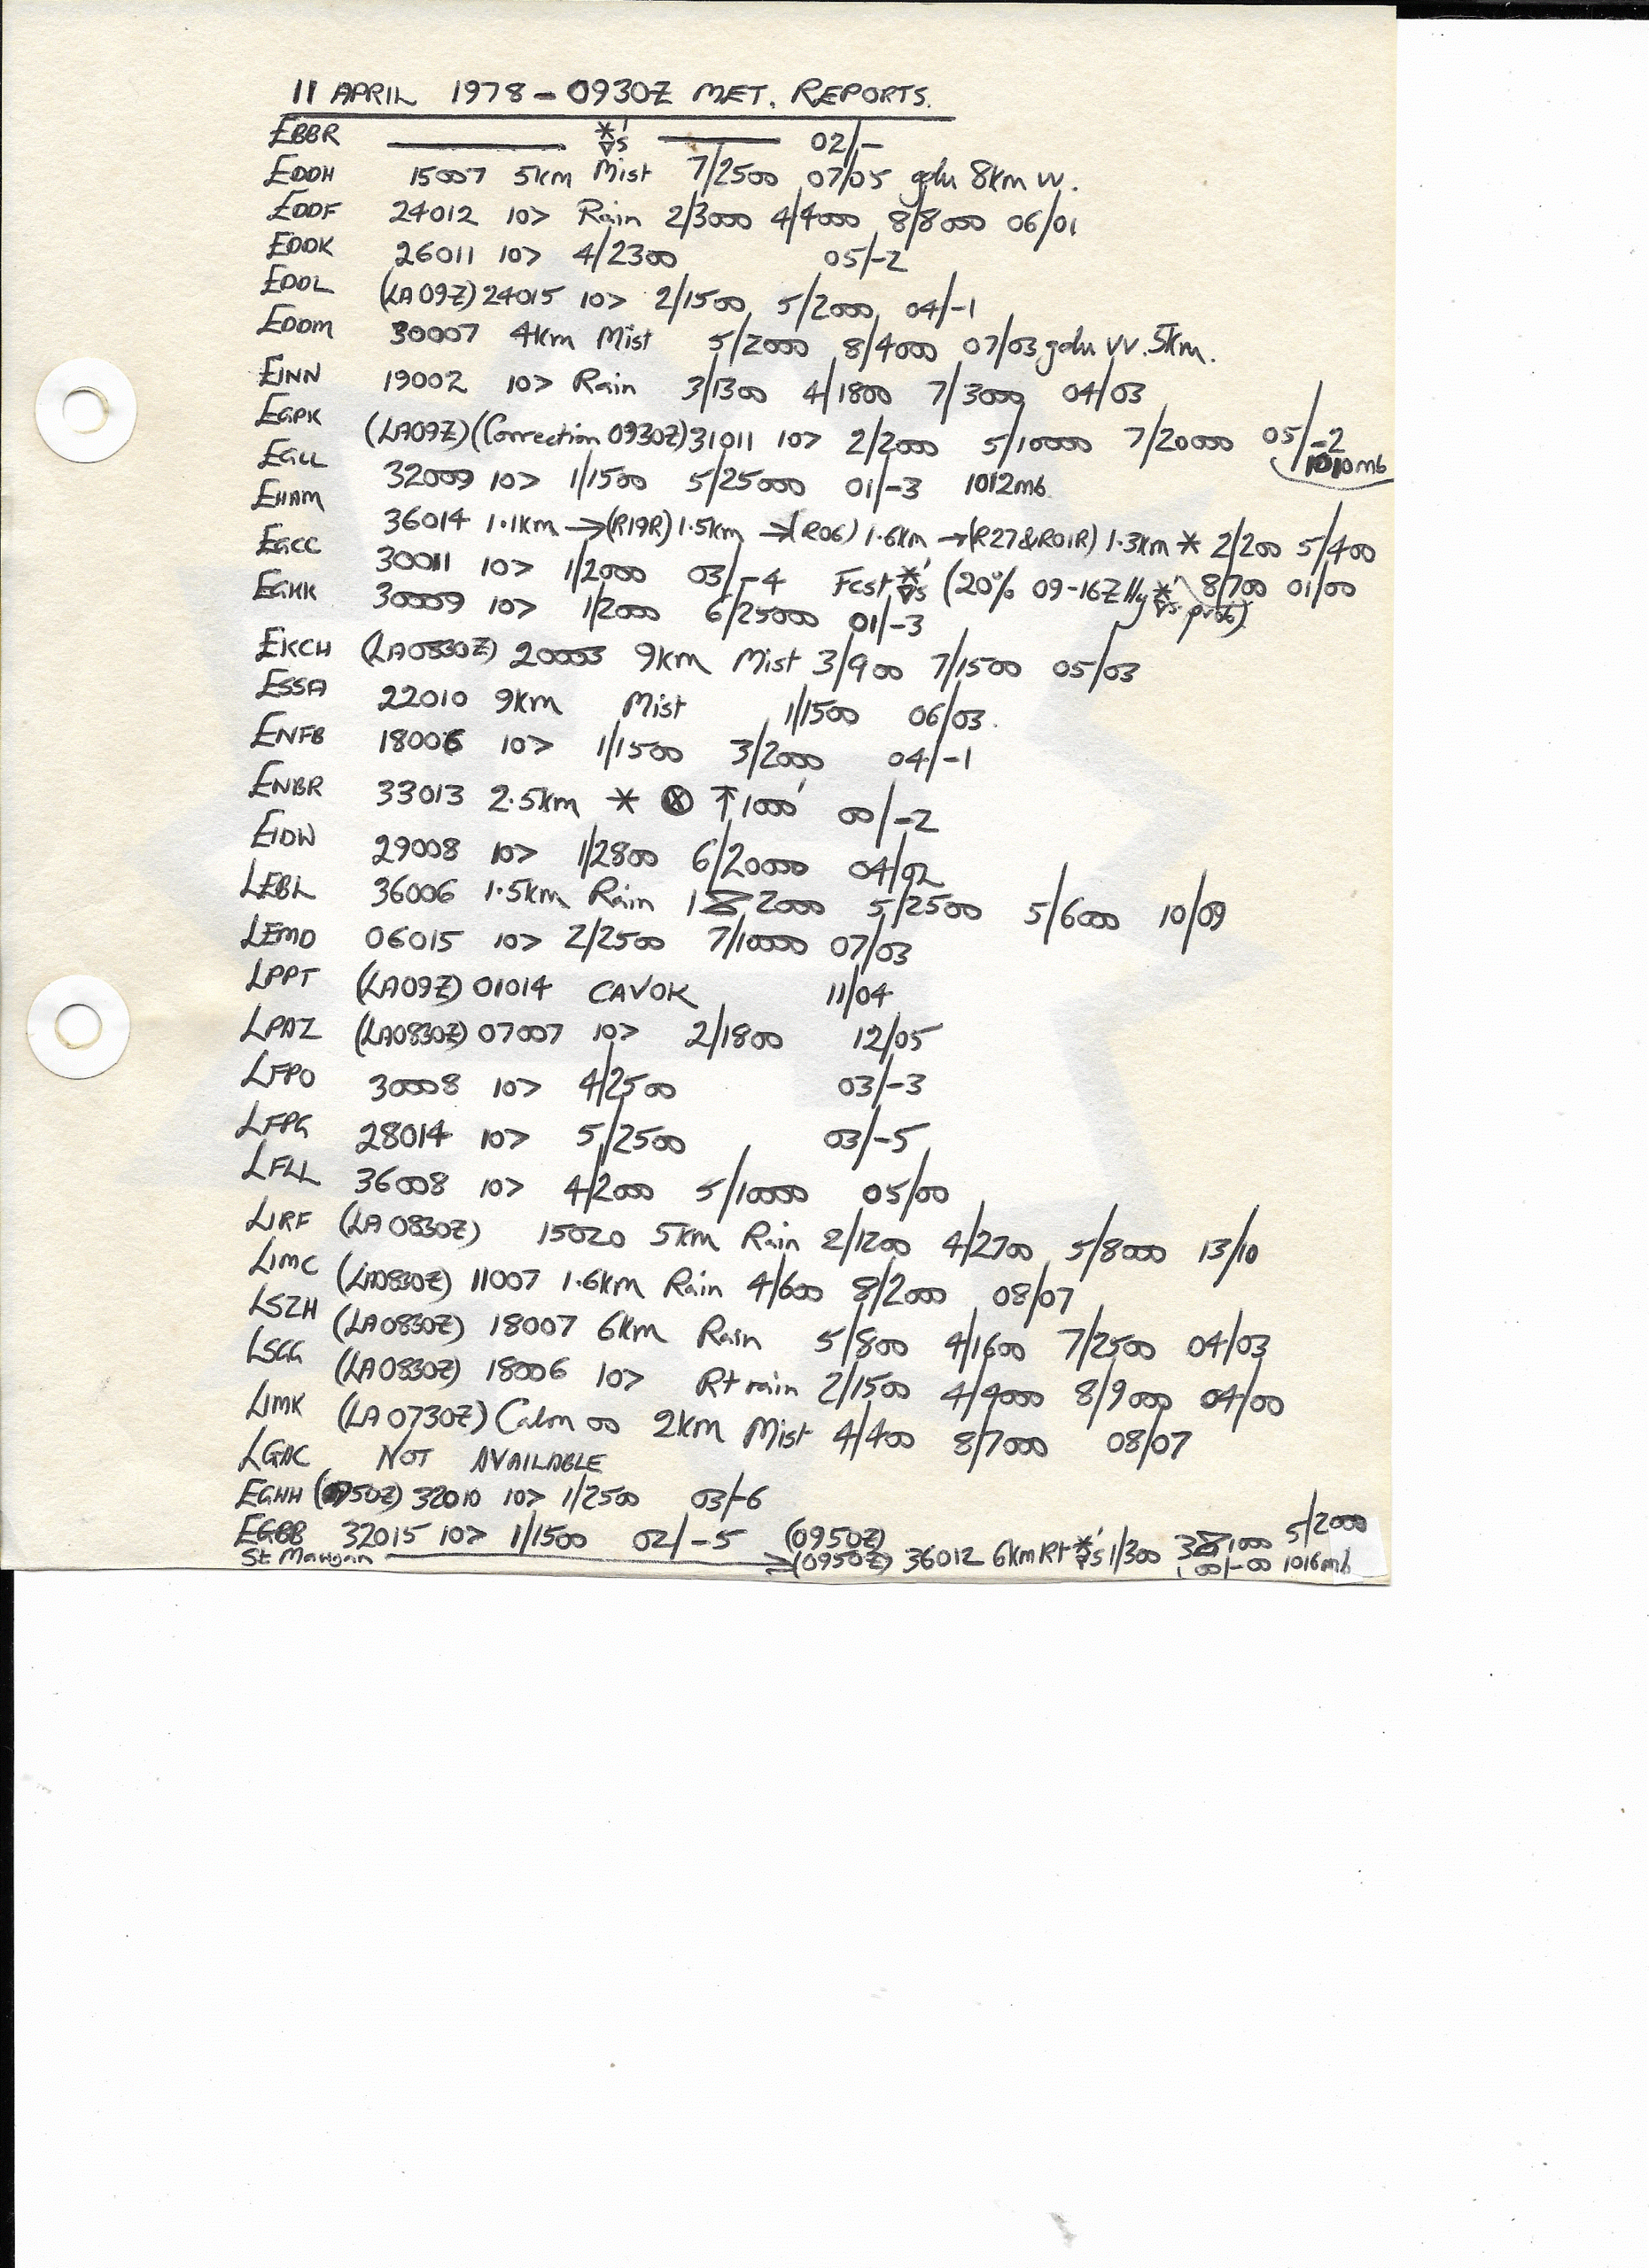 11 APRIL 1978 - 0930Z MET. REPORTS.
EBBR 02/-
EDDH 15007 5km Mist 7/2500 07/05 gdu 8km VV.
EDDF 24012 10> Rain 2/3000 4/4000 8/8000 06/01
EDDK 26011 10> 4/2300 05/-2
EDDL (LA09Z) 24015 10> 2/1500 5/2000 04/-1
EDDM 30007 4km Mist 5/2000 8/4000 07/03 gdu VV.5km.
EINN 19002 10> Rain 3/1300 4/1800 7/3000 04/03
EGPK (LA09Z)(Correction 0930Z) 31011 10> 2/2000 5/10000 7/20000 05/-2 1010mb
EGLL 32009 10> 1/1500 5/25000 01/-3 1012mb
EHAM 36014 1.1km →(R19R) 1.5km →(R06) 1.6km →(R27&R01R) 1.3km * 2/200 5/400 8/700 01/00
EGCC 30011 10> 1/2000 03/-4 Fcst *s (20% 09-16Z prob)
EGKK 30009 10> 1/2000 6/25000 01/-3
EKCH (LA0830Z) 20003 9km Mist 3/900 7/1500 05/03
ESSA 22010 9km Mist 1/1500 06/03.
ENFB 18006 10> 1/1500 3/2000 04/-1
ENBR 33013 2.5km * ⊗ ↑1000' 00/-2
EIDW 29008 10> 1/2800 6/20000 04/02
LEBL 36006 1.5km Rain 2000 5/2500 5/6000 10/09
LEMD 06015 10> 2/2500 7/10000 07/03
LPPT (LA09Z) 01014 CAVOK 11/04
LPAZ (LA0830Z) 07007 10> 2/1800 12/05
LFPO 30008 10> 4/2500 03/-3
LFPG 28014 10> 5/2500 03/-5
LFLL 36008 10> 4/2000 5/10000 05/00
LIRF (LA0830Z) 15020 5km Rain 2/1200 4/2700 5/8000 13/10
LIMC (LA0830Z) 11007 1.6km Rain 4/600 8/2000 08/07
LSZH (LA0830Z) 18007 6km Rain 5/800 4/1600 7/2500 04/03
LSGG (LA0830Z) 18006 10> Rt rain 2/1500 4/4000 8/9000 04/00
LIMK (LA0730Z) Calm 00 2km Mist 4/400 8/7000 08/07
LGAC NOT AVAILABLE
EGHH (0950Z) 32010 10> 1/2500 03/-6
EGBB 32015 10> 1/1500 02/-5 (0950Z)
St Mawgan →(0950Z) 36012 6km Rt *s 1/300 3/1000 5/2000 00/-00 1016mb